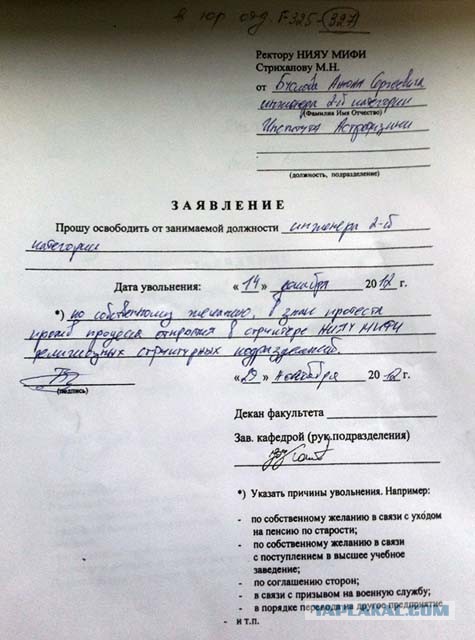 в юр отд. F325-327)
Ректору НИЯУ МИФИ
Стриханову М.Н.
от Буслова Антона Сергеевича
инженера 2-й категории
(Фамилия Имя Отчество)
Института Астрофизики
(должность, подразделение)
ЗАЯВЛЕНИЕ
Прошу освободить от занимаемой должности инженера 2-й
категории
Дата увольнения: «14» декабря 2012 г.
*) по собственному желанию, в знак протеста
против процесса открытия в структуре НИЯУ МИФИ
религиозных структурных подразделений.
(подпись)
ноября 2012 г.
Декан факультета
Зав. кафедрой (рук.подразделения)
*) Указать причины увольнения. Например:
- по собственному желанию в связи с уходом
на пенсию по старости;
- по собственному желанию в связи
с поступлением в высшее учебное
заведение;
- по соглашению сторон;
- в связи с призывом на военную службу;
- в порядке перевода на другое предприятие
- и т.п.
YAPLAKAL.COM